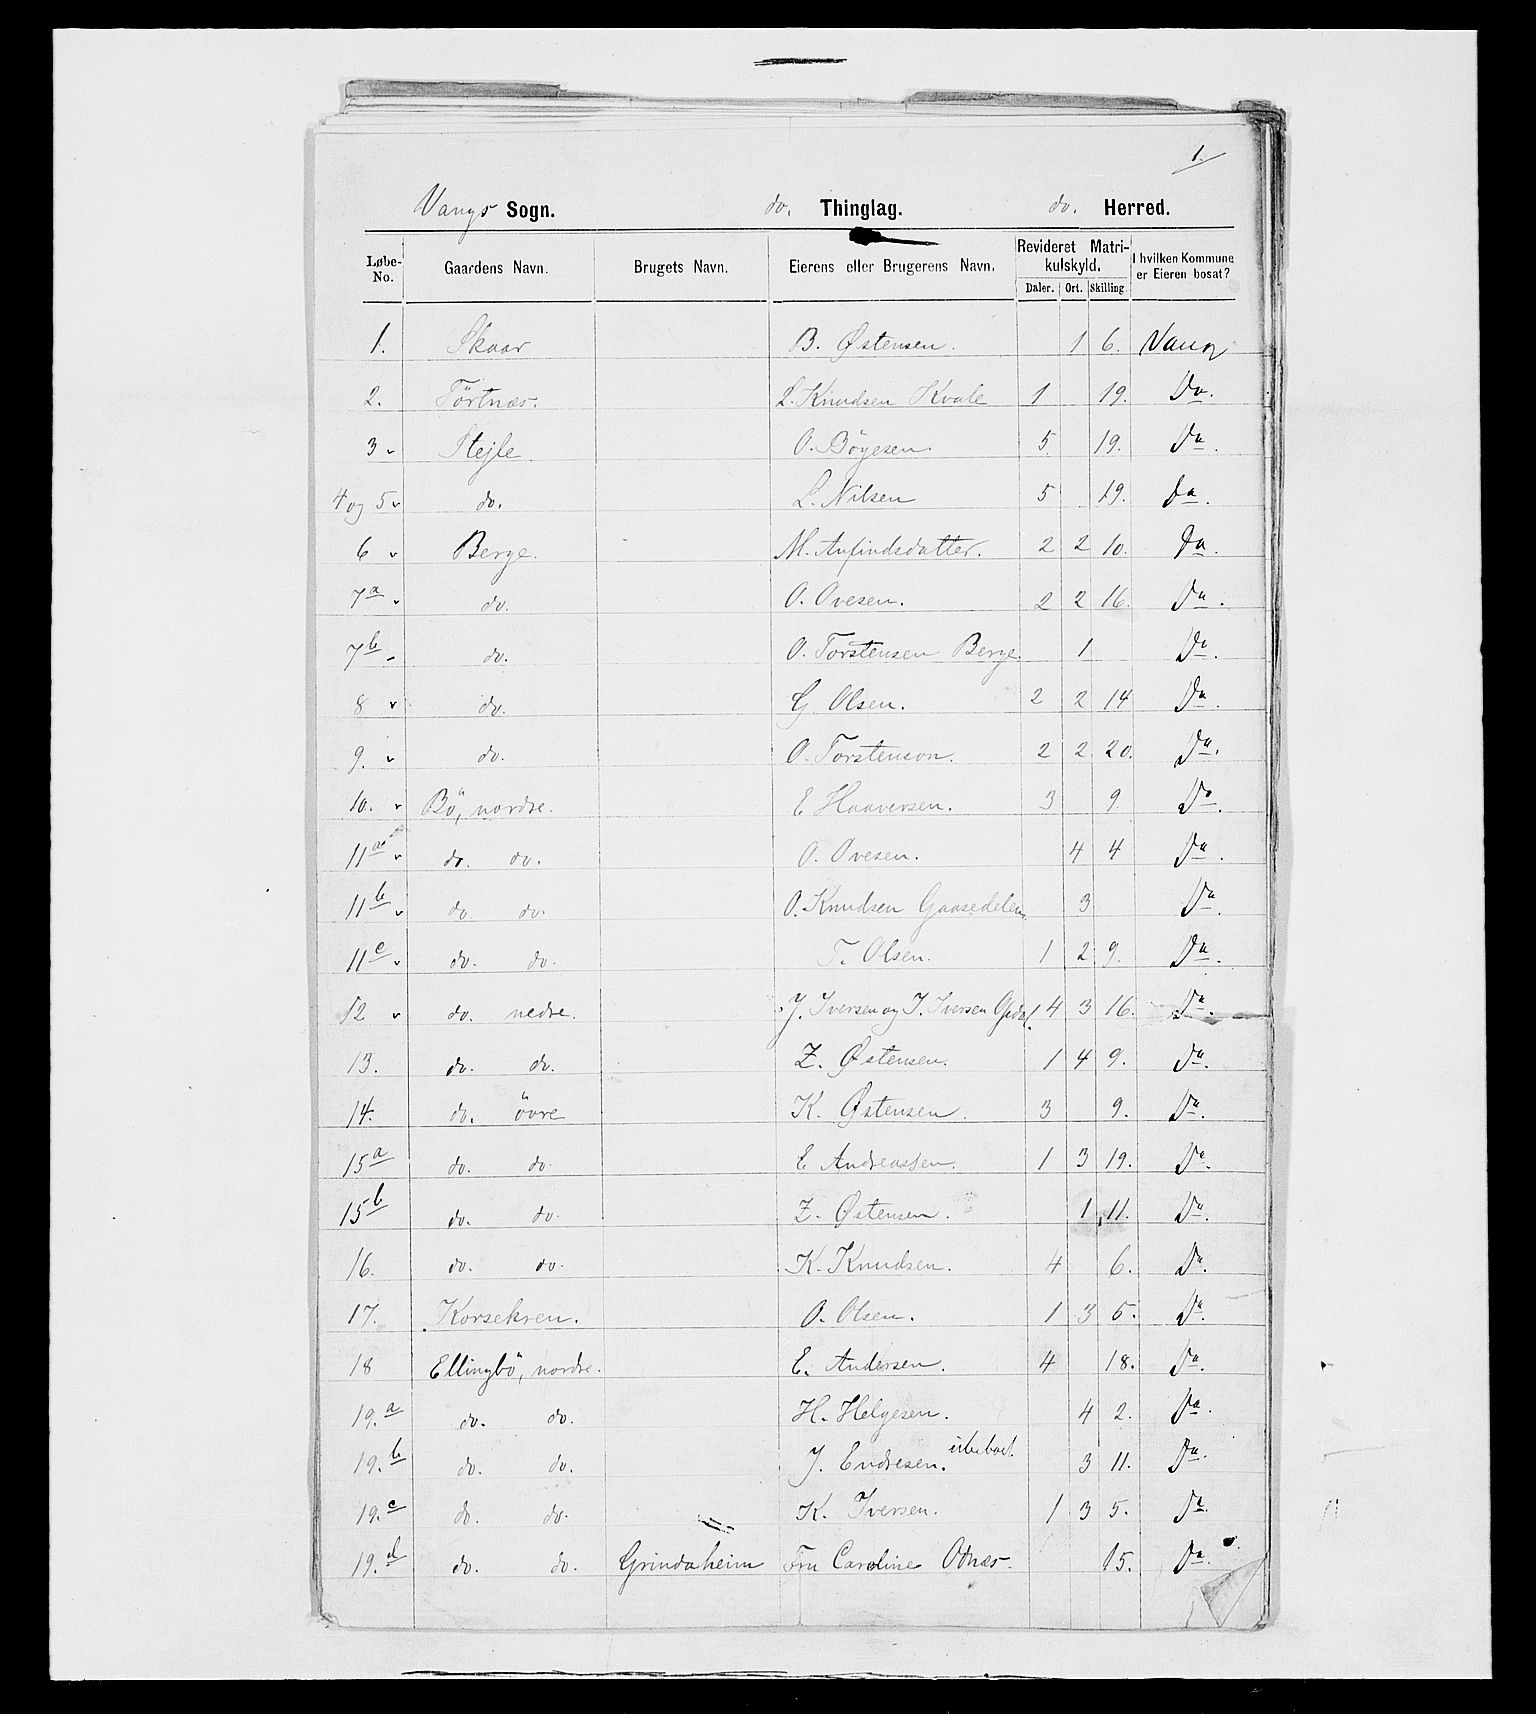 1.
Vangs Sogn. do. Thinglag. do. Herred.
Løbe-No. Gaardens Navn. Brugets Navn. Eierens eller Brugerens Navn. Revideret Matrikulskyld. Daler. Ort. Skilling. I hvilken Kommune er Eieren bosat?
1. Skaar B. Østensen. 1 6. Vang
2. Törtnæs. L. Knudsen Kvale 1 19. Do.
3 Stejle O. Böyesen. 5. 19. Do.
4 og 5 do. L. Nilsen 5 19. Do.
6 Berge. M. Anfindsdatter. 2 2 10. Do.
7a do. O. Ovesen. 2 2 16. Do.
7b do. O. Torstensen Berge. 1 Do.
8 do. G. Olsen. 2 2 14 Do.
9. do. O. Torstenson. 2 2 20. Do.
10. Bö, nordre. E Haaversen. 3 9. Do.
11a do. do. O. Ovesen. 4 4 Do.
11b do. do. O. Knudsen Gaasedelen 3 Do.
11c do. do. T. Olsen. 1 2 9. Do.
12 do. nedre. J. Iversen og I. Iversen Opdal. 4 3 16. Do.
13. do. do. Z. Østensen. 1 4 9. Do.
14. do. övre K. Østensen. 3 9. Do.
15a do. do. E Andreassen. 1 3 19. Do.
15b do. do. Z. Østensen. 1 11. Do.
16. do. do. K. Knudsen. 4 6. Do.
17. Korsekren. O. Olsen. 1 3 5. Do.
18 Ellingbö, nordre. E. Andersen. 4 18. Do.
19.a do. do. H. Helgesen. 4 2. Do.
19.b do. do. J. Endresen. ubeboet. 3 11. Do.
19.c do. do. K. Iversen. 1 3 5. Do.
19.d do. do. Grindaheim Fru Caroline Odnæs. 15. Do.